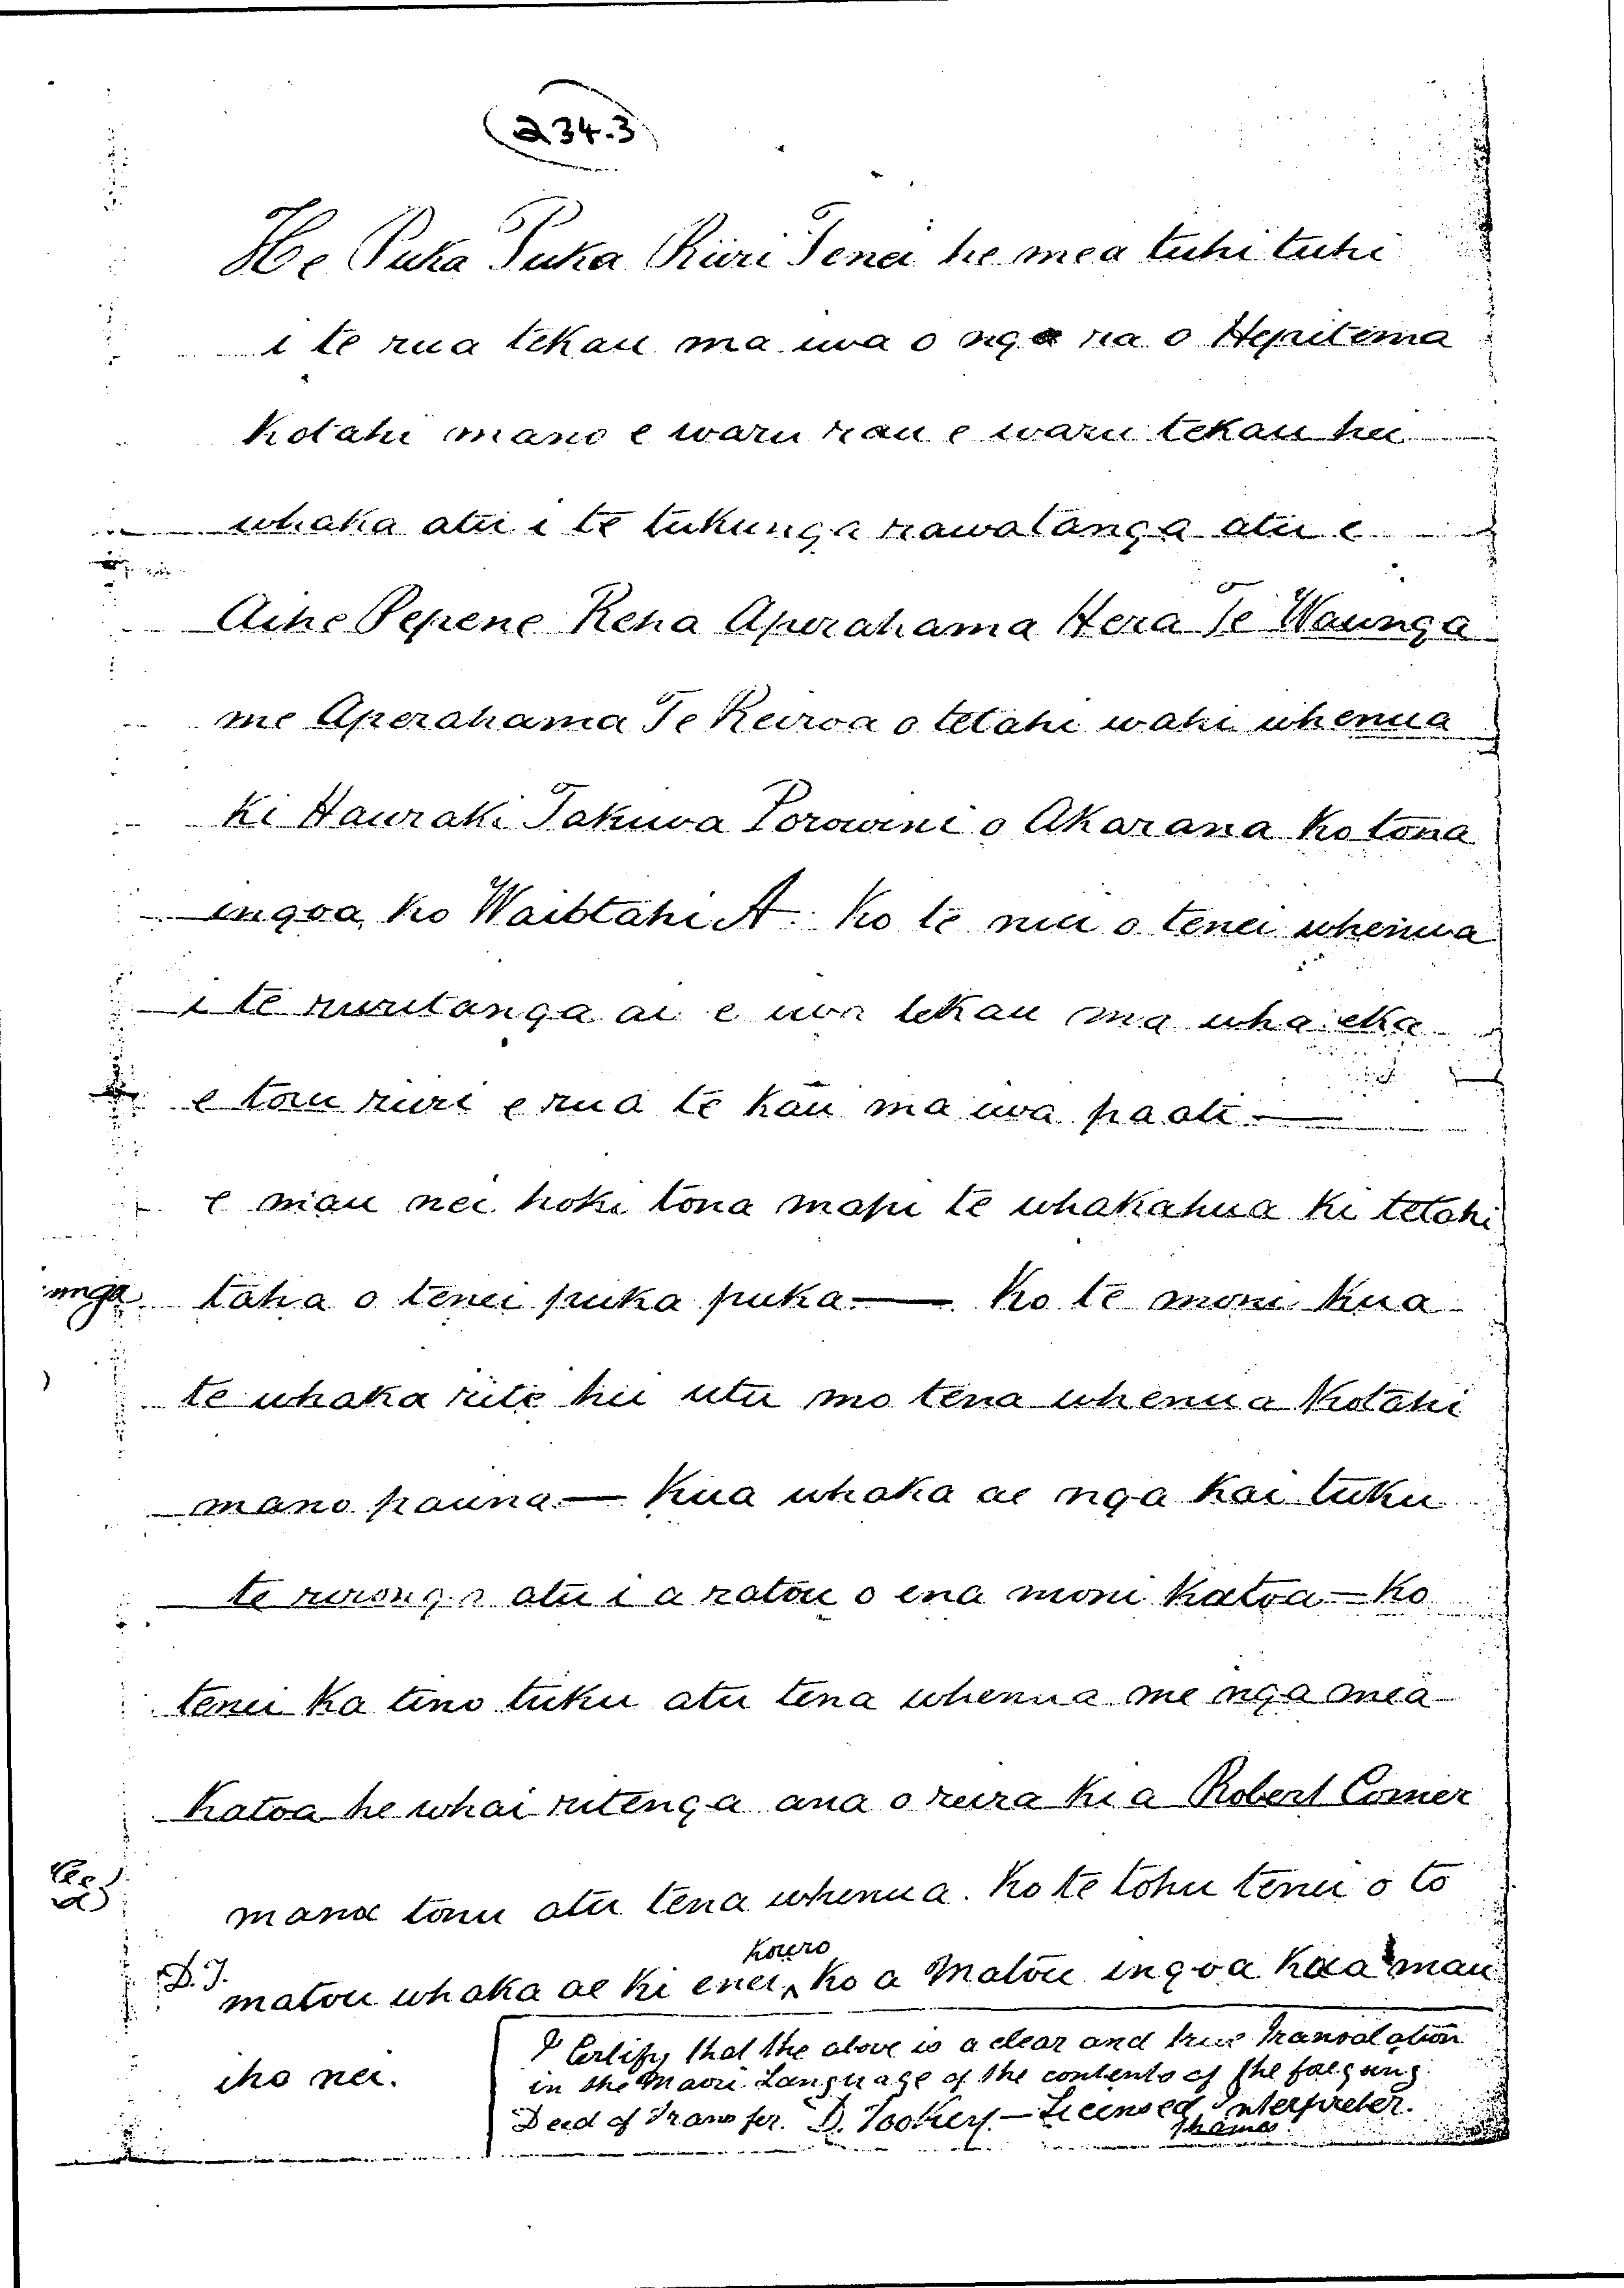 234.3
He Puka Puka Ruri Tenei he mea tuhi tuhi
i te rua tekau ma iwa o nga ra o Hepitema
Kotahi mano e waru rau e waru tekau hei
whaka atu i te tukunga rawatanga atu e
Aihe Pepene Reha Aperahama Hera Te Waunga
me Aperahama Te Reiroa o tetahi wahi whenua
Ki Hauraki Takiwa Porowini o Akarana Ko tona
ingoa, Ko Waiotahi A. Ko te nui o tenei whenua
i te ruritanga ai e iwa tekau ma wha eka
e toru ruri e rua te kau ma iwa paati
e mau nei hoki tona mapi te whakahua ki tetahi
unga taha o tenei puka puka — Ko te moni Kua
te whaka rite hei utu mo tena whenua Kotahi
mano pauna — Kua whaka ae nga Kai tuku
te rironga atu i a ratou o ena moni Katoa — Ko
tenei Ka tino tuku atu tena whenua me nga mea
Katoa he whai ritenga ana o reira Ki a Robert Comer
mana tonu atu tena whenua. Ko te tohu tenei o to
Korero
D.T. matou whaka ae ki enei, Ko a Matou ingoa Kaa mau
iho nei.
I Certify that the above is a clear and true Translation
in the Maori Language of the contents of the foregoing
Deed of Transfer. D. Tookey. — Licensed Interpreter.
Thames